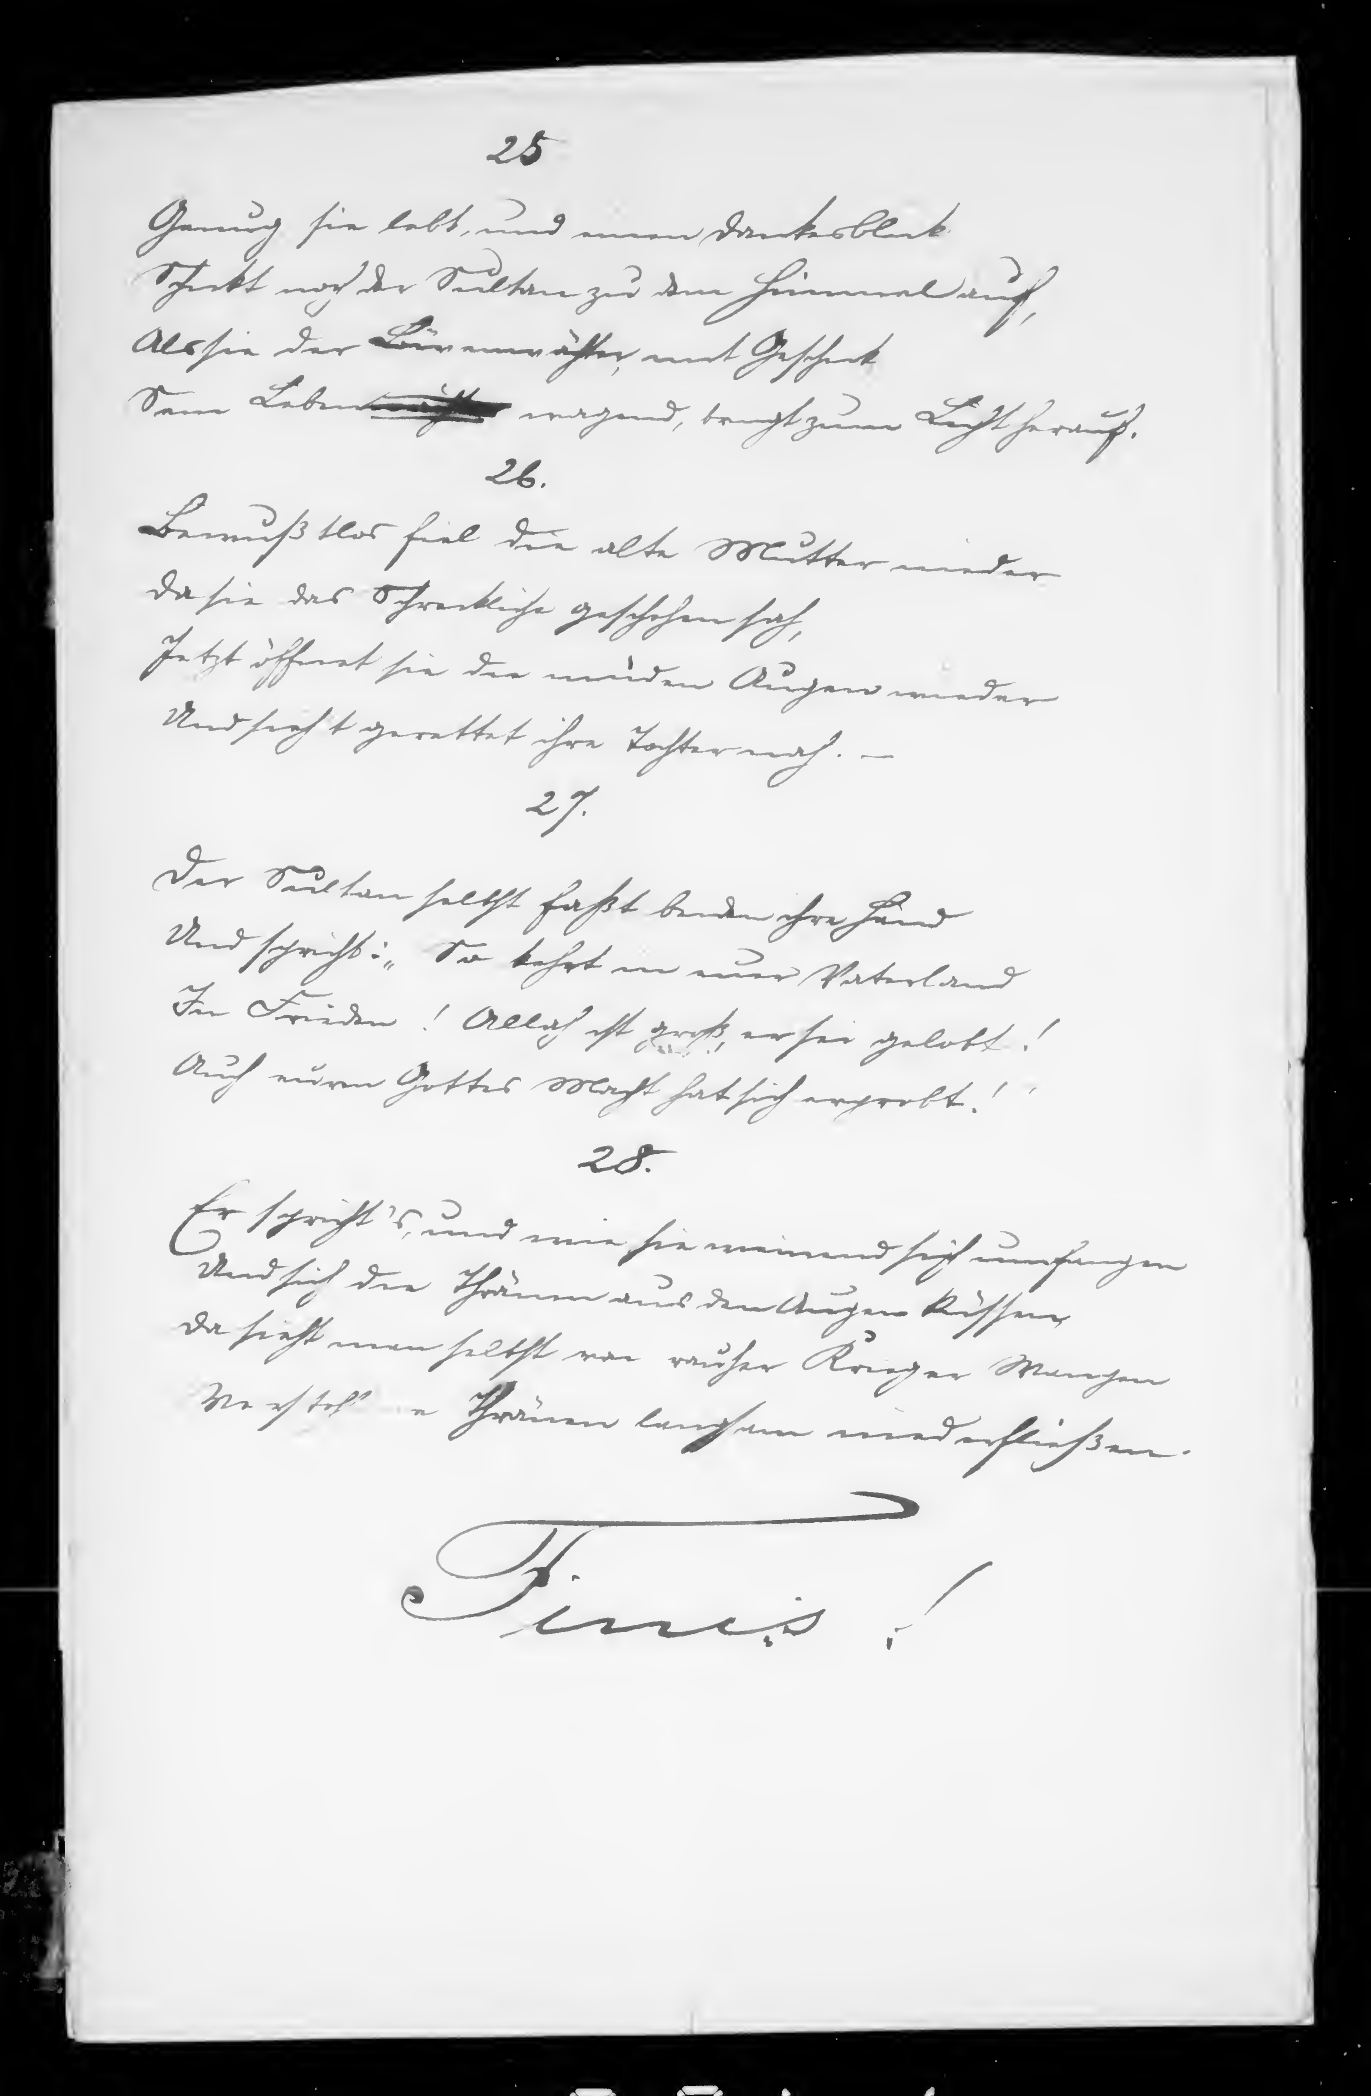 25
Genug sie lebt, und einen Dankesblick
Schickt noch der Sultan zu dem Himmel auf,
Als sie der Löwenwächter, mit Geschick
Sein Leben wagend, bringt zum Licht herauf.
26.
Bewußtlos fiel die alte Mutter nieder
Da sie das Schreckliche geschehen sah,
Jetzt öffnet sie die müden Augen wieder
Und sieht gerettet ihre Tochter nah. —
27.
Der Sultan selbst faßt beiden ihre Hand
Und spricht: „So kehrt in euer Vaterland
In Frieden! Allah ist groß, er sei gelobt!
Auch euren Gottes Macht hat sich erprobt!"
28.
Er spricht's, und wie sie weinend sich umfangen
Und sich die Thränen aus den Augen küssen,
Da sieht man selbst von rauher Krieger Wangen
Thränen langsam niederfließen.
Finis!